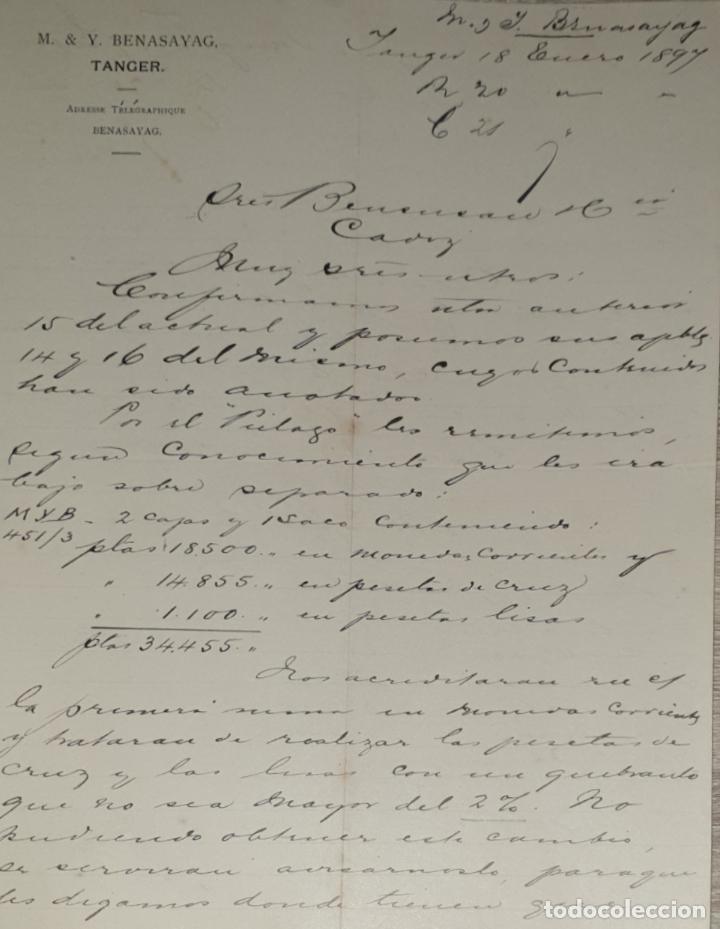 M. & Y. BENASAYAG,
TANGER.
ADRESSE TÉLÉGRAPHIQUE
BENASAYAG.
M. y Y. Benasayag
Tanger 18 Enero 1897
R 20 " "
C 21 "
Sres Bensusan y Cia
Cadiz
Muy sres ntros:
Confirmamos ntra anterior
15 del actual y poseemos sus apbles
14 y 16 del mismo, cuyos contenidos
han sido anotados.
Por el "Pielago" les remitimos,
segun conocimiento que les ira
bajo sobre separado:
MYB - 2 cajas y 1 Saco conteniendo:
451/3 ptas 18.500 " en monedas corrientes y
" 14.855 " en pesetas de cruz
" 1.100 " en pesetas lisas
ptas 34.455 "
Nos acreditaran en c/
la primera suma en monedas corrientes
y trataran de realizar las pesetas de
cruz y las lisas con un quebranto
que no sea mayor del 2%. No
pudiendo obtener este cambio,
se serviran avisarnoslo, para que
les digamos donde tienen
todocoleccion